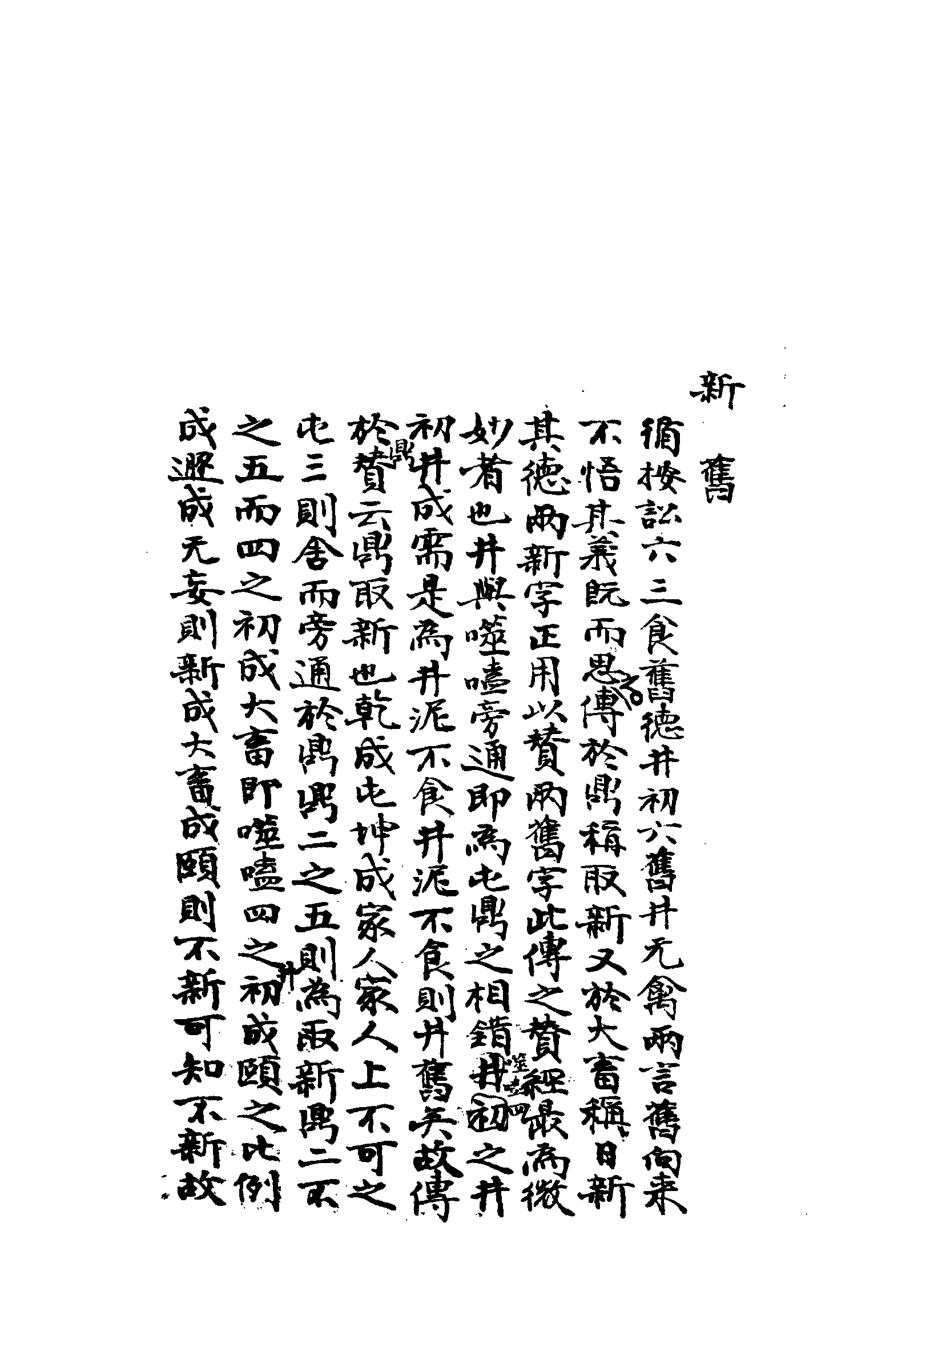 新　舊
循按訟六三食舊德井初六舊井无禽兩言舊向来
不悟其義既而思之傳於鼎稱取新又於大畜稱日新
其德兩新字正用以贊兩舊字此傳之贊經最為微
妙者也井與噬嗑旁通即為屯鼎之相錯噬嗑四之井
初井成需是為井泥不食井泥不食則井舊矣故傳
於鼎贊云鼎取新也乾成屯坤成家人家人上不可之
屯三則舍而旁通於鼎鼎二之五則為取新鼎二不
之五而四之初成大畜即噬嗑四之井初成頤之比例
成遯成无妄則新成大畜成頤則不新可知不新故